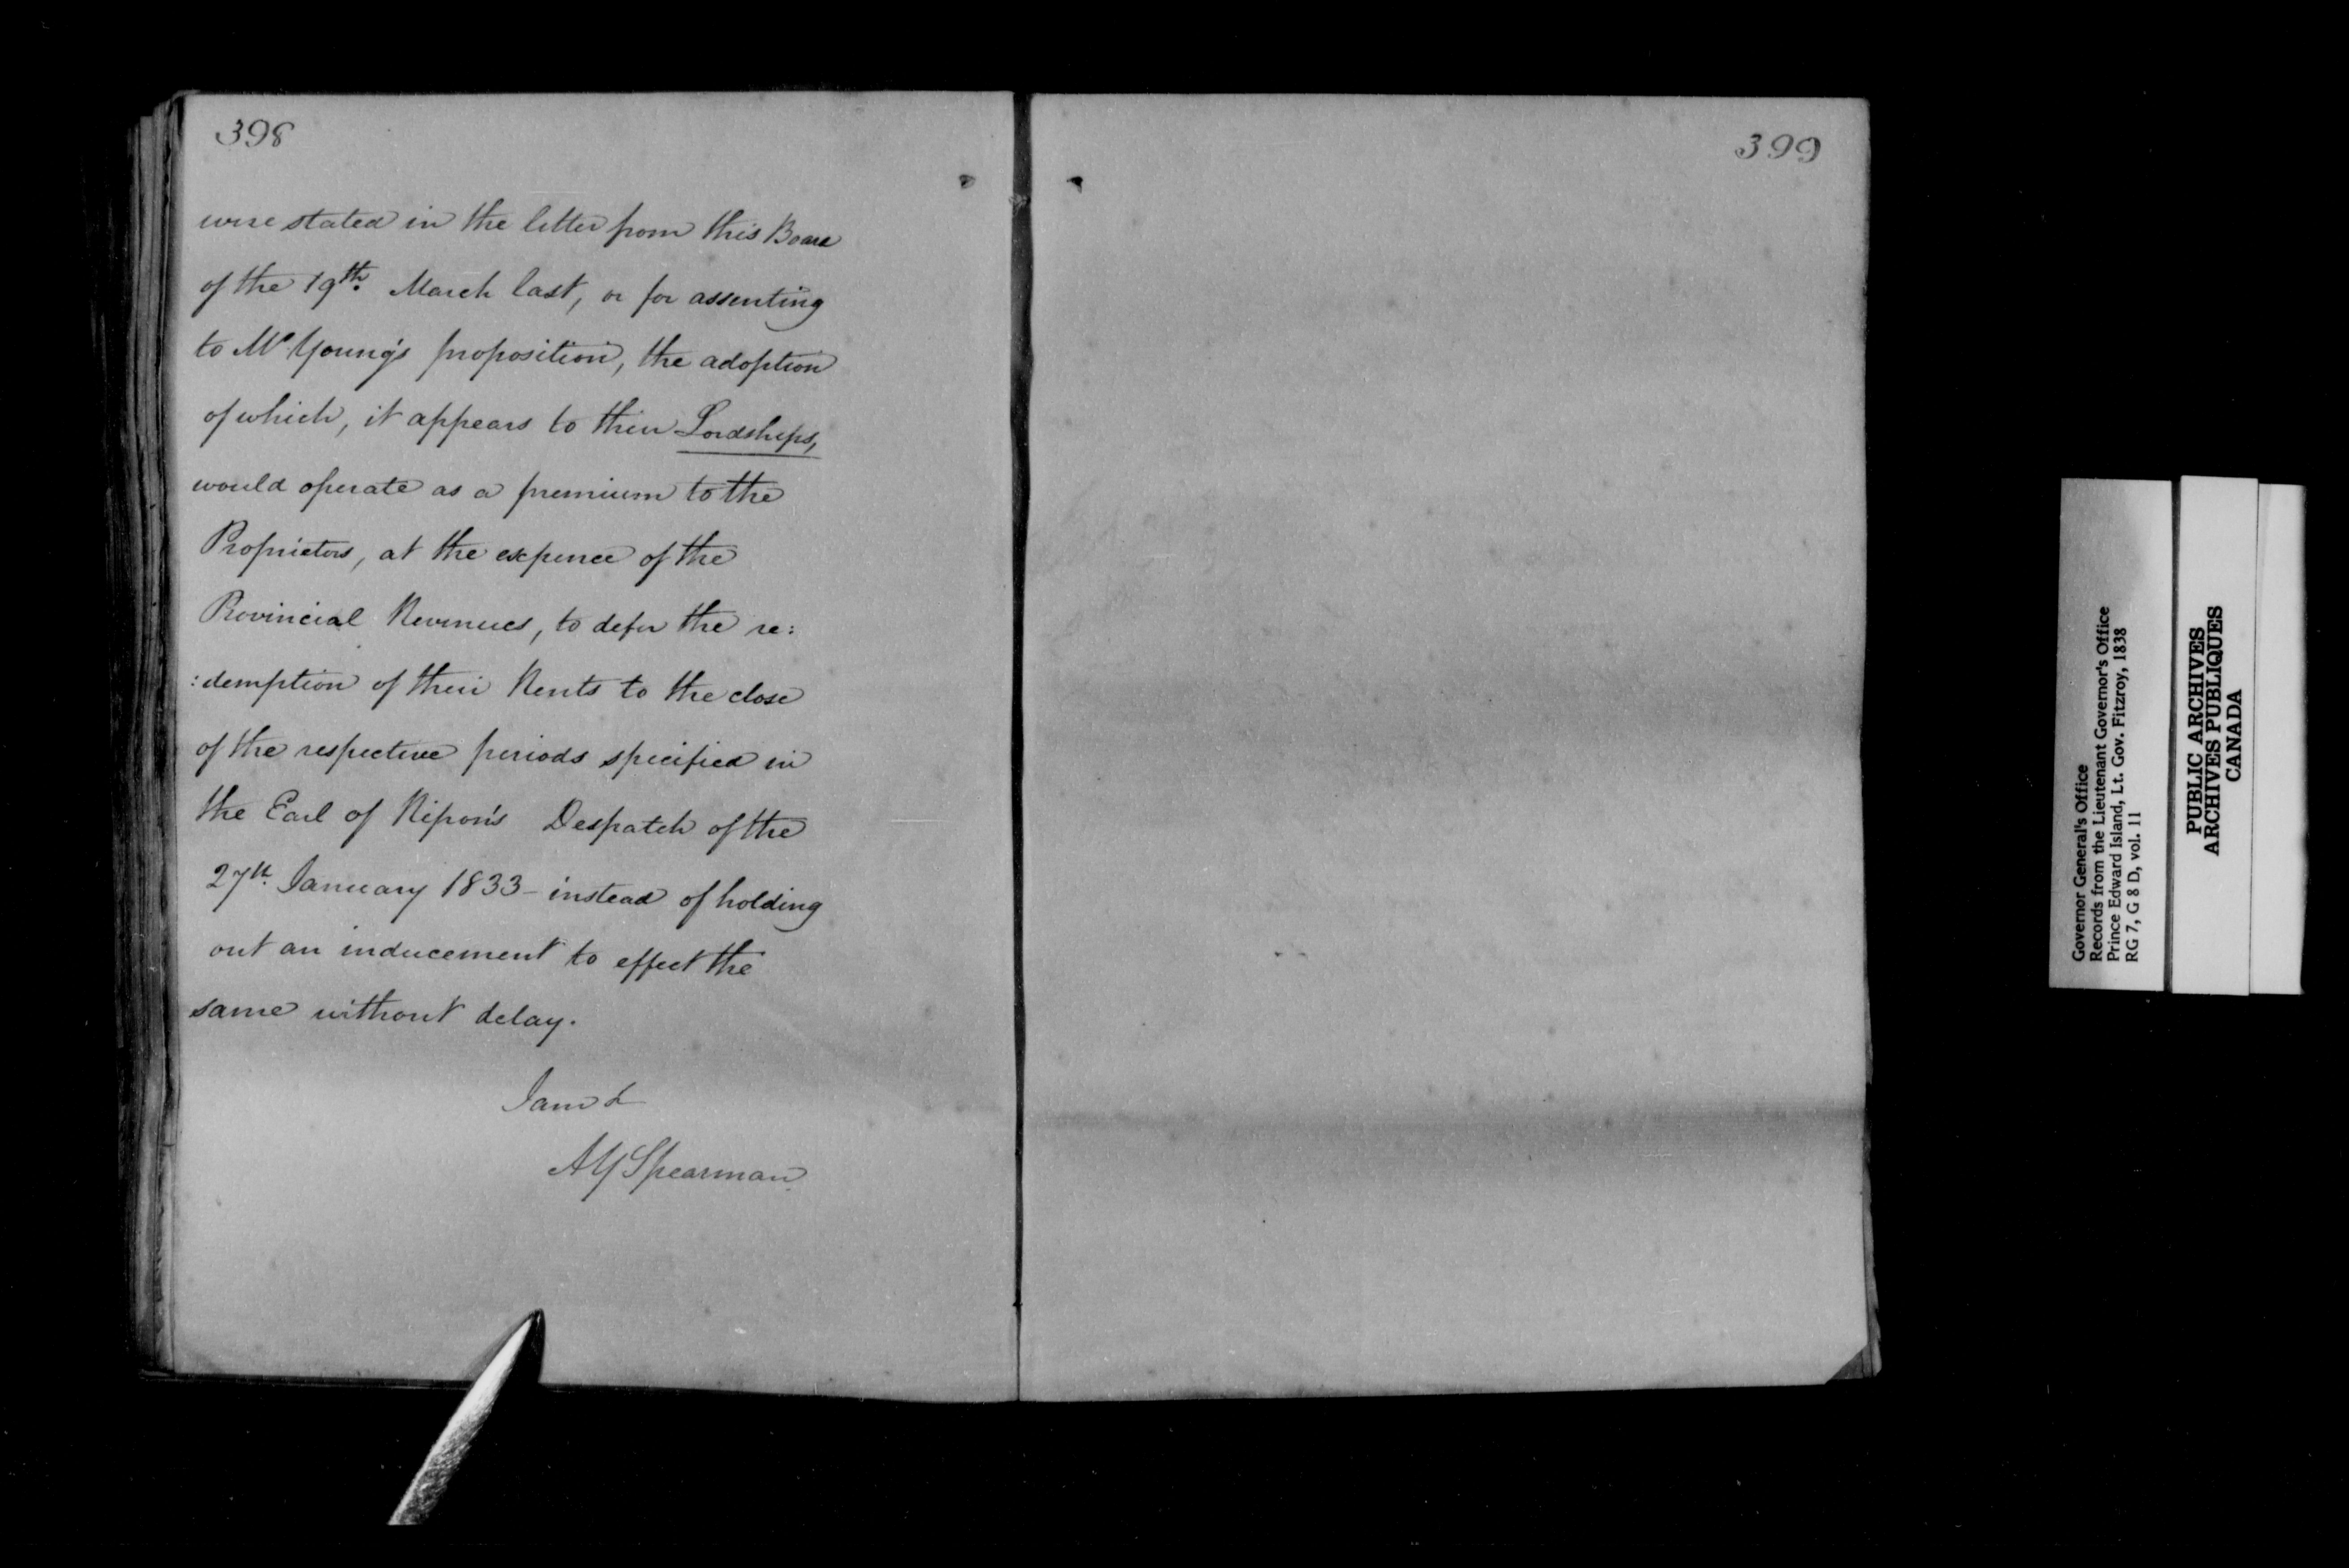 398
were stated in the letter from this Board
of the 19th. March last, or for assenting
to Mr Young's proposition, the adoption
of which, it appears to their Lordships,
would operate as a premium to the
Proprietors, at the expence of the
Provincial Revenues, to defer the re:
:demption of their Rents to the close
of the respective periods specified in
the Earl of Ripon's Despatch of the
27th. January 1833 - instead of holding
out an inducement to effect the
same without delay.
I am &
A Y Spearman
399
Governor General's Office
Records from the Lieutenant Governor's Office
Prince Edward Island, Lt. Gov. Fitzroy, 1838
RG 7, G 8 D, vol. 11
PUBLIC ARCHIVES
ARCHIVES PUBLIQUES
CANADA